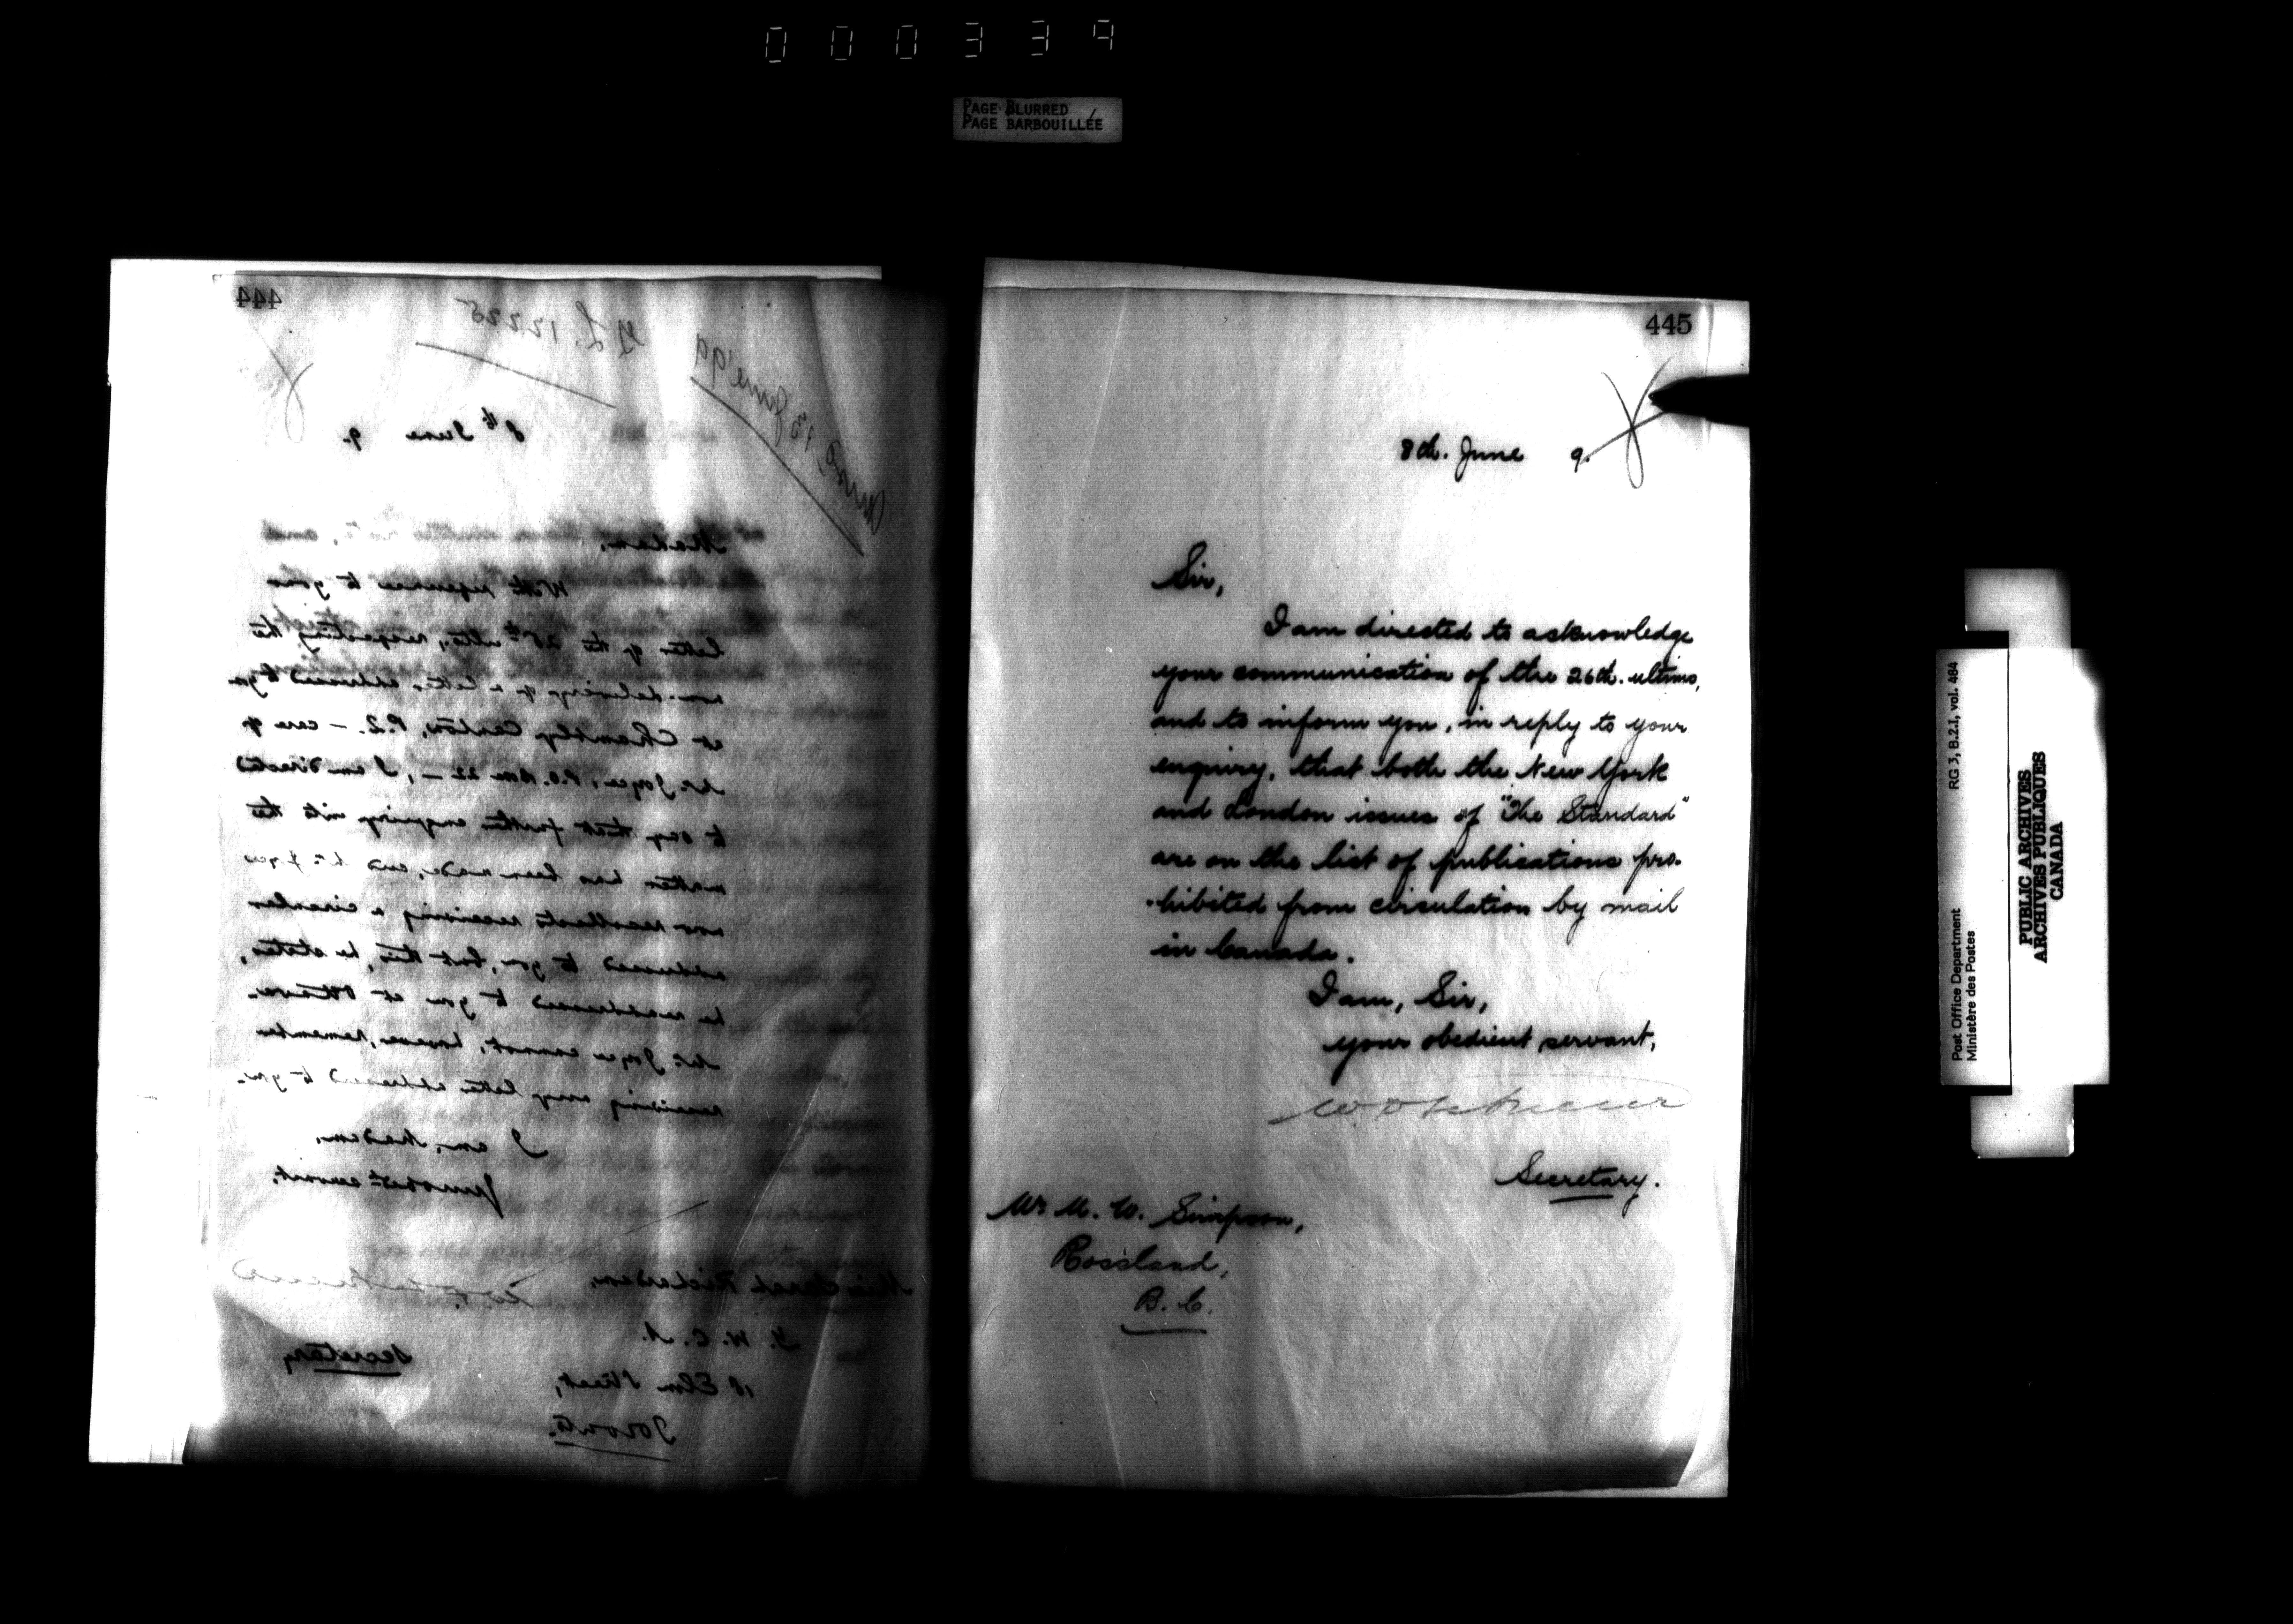 000339
PAGE BLURRED
PAGE BARBOUILLÉE
444
G.L. 12225
13 June '99
8th June 9.
Madam,
With reference to your
letter of the 25th ulto, respecting the
non-delivery of a letter addressed to you
at Chambly Canton, P.Q. – care of
Mr. Joyce, P.O. Box 22 –, I am directed
to say that further enquiry into the
matter has been made, and Mr. Joyce
now recollects receiving a circular
addressed to you, but this, he states,
he readdressed to you at Ottawa.
Mr. Joyce cannot, however, remember
receiving any letter addressed to you.
I am, Madam,
Your obedt servant,
Miss Sarah Richardson,
Y. W. C. A.
18 Elm Street,
Toronto.
Secretary
445
8th. June 9.
Sir,
I am directed to acknowledge
your communication of the 26th. ultimo,
and to inform you, in reply to your
enquiry, that both the New York
and London issues of "The Standard"
are on the list of publications pro-
-hibited from circulation by mail
in Canada.
I am, Sir,
your obedient servant,
Secretary.
Mr M. W. Simpson,
Rossland,
B. C.
Post Office Department RG 3, B.2.I, vol. 484
Ministère des Postes
PUBLIC ARCHIVES
ARCHIVES PUBLIQUES
CANADA